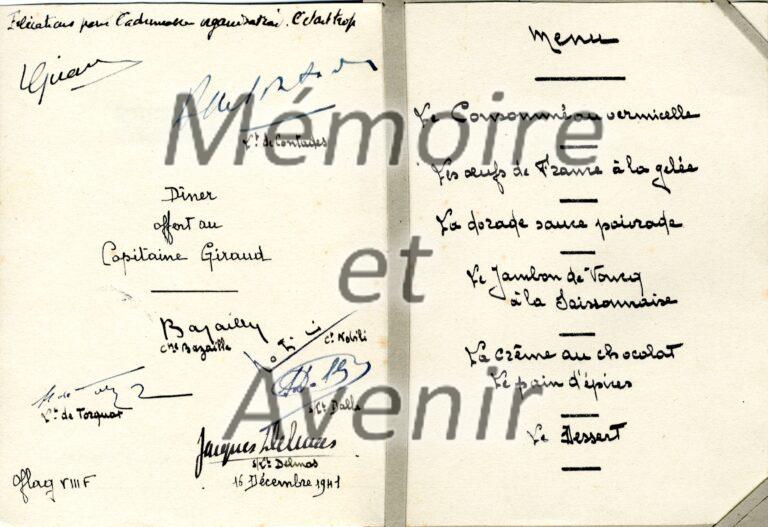 Félicitations pour l'admirable organisation. C'était trop
LGiraud
Lt de Contades
Dîner
offert au
Capitaine Giraud
Bazaille
Cne Bazaille
Ct Kobili
Lt de Torquat
s/Lt Dalle
Jacques Delmas
s/Lt Delmas
16 Décembre 1941
Oflag VIII F
Menu
Le Consommé au vermicelle
Les œufs de France à la gelée
La dorade sauce poivrade
Le Jambon de Voucq
à la Soissonnaise
La crème au chocolat
Le pain d'épices
Le Dessert
Mémoire
et
Avenir